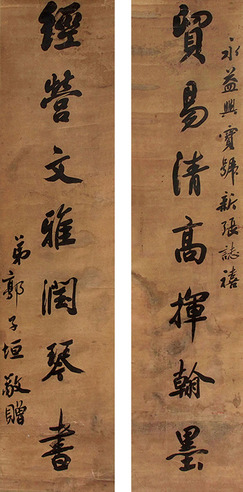 永益興寶號新張誌禧
貿易清高揮翰墨
經營文雅潤琴書
弟郭子垣敬贈